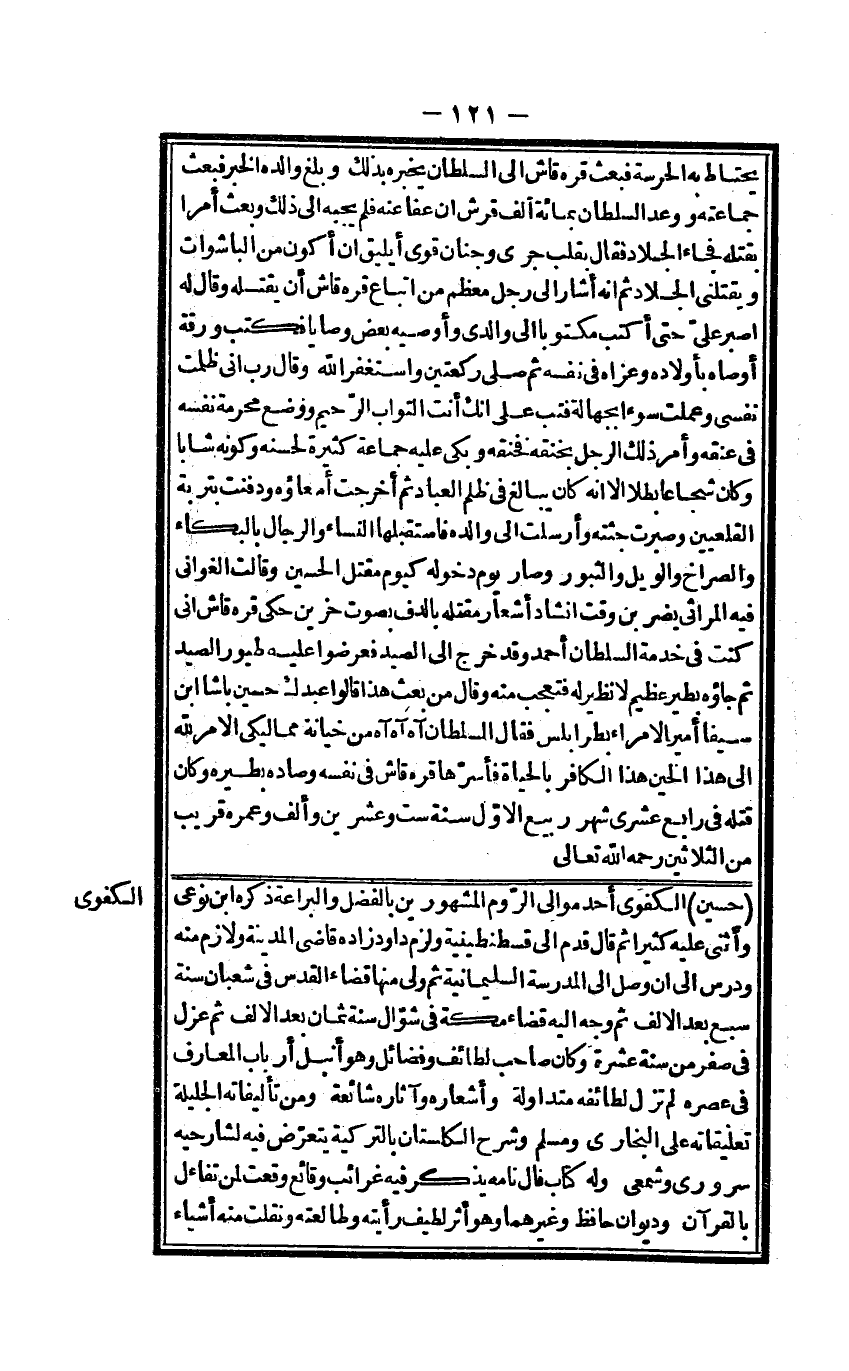 — ١٢١ —
يحتاط به الحرسة فبعث قره قاش الى السلطان يخبره بذلك وبلغ والده الخبر فبعث
جماعته ووعد السلطان بمائة آلف قرش ان عفا عنه فلم يجبه الى ذلك وبعث أمرا
بقتله فجاء الجلاد فقال بقلب جرى وجنان قوى أيليق ان أكون من الباشوات
ويقتلنى الجلاد ثم انه أشار الى رجل معظم من اتباع قره قاش أن يقتله وقال له
اصبر علىّ حتى أكتب مكتوبا الى والدى وأوصيه بعض وصايا فكتب ورقة
أوصاه بأولاده وعزاه فى نفسه ثم صلى ركعتين واستغفر الله وقال رب انى ظلمت
نفسى وعملت سوءا بجهالة فتب على انك أنت التواب الرّحيم ووضع محرمة نفسه
فى عنقه وأمر ذلك الرجل بخنقه فخنقه وبكى عليه جماعة كثيرة لحسنه وكونه شابا
وكان شجاعا بطلا الا انه كان يبالغ فى ظلم العباد ثم أخرجت أمعاؤه ودفنت بتربة
القلعيين وصبرت جثته وأرسلت الى والده فاستقبلها النساء والرجال بالبكاء
والصراخ والويل والثبور وصار يوم دخوله كيوم مقتل الحسين وقالت الغوانى
فيه المراثى يضربن وقت انشاد أشعار مقتله بالدف بصوت حزين حكى قره قاش انى
كنت فى خدمة السلطان أحمد وقد خرج الى الصيد فعرضوا عليه طيور الصيد
ثم جاؤه بطير عظيم لا نظير له فتعجب منه وقال من بعث هذا قالوا عبدك حسين باشا ابن
سيفا أمير الامراء بطرابلس فقال السلطان آه آه آه من خيانة مماليكى الامر لله
الى هذا الحين هذا الكافر بالحياة فأسرّها قره قاش فى نفسه وصاده بطيره وكان
قتله فى رابع عشرى شهر ربيع الاوّل سنة ست وعشرين وألف وعمره قريب
من الثلاثين رحمه الله تعالى
الكفوى
(حسين) الكفوى أحد موالى الرّوم المشهورين بالفضل والبراعة ذكره ابن نوعى
وأثنى عليه كثيرا ثم قال قدم الى قسطنطينية ولزم داود زاده قاضى المدينة ولازم منه
ودرس الى ان وصل الى المدرسة السليمانية ثم ولى منها قضاء القدس فى شعبان سنة
سبع بعد الالف ثم وجه اليه قضاء مكة فى شوّال سنة ثمان بعد الالف ثم عزل
فى صفر من سنة عشرة وكان صاحب لطائف وفضائل وهو أنبل أرباب المعارف
فى عصره لم تزل لطائفه متداولة وأشعاره وآثاره شائعة ومن تأليفاته الجليلة
تعليقاته على البخارى ومسلم وشرح الكلستان بالتركية يتعرّض فيه لشارحيه
سرورى وشمعى وله كتاب فال نامه يذكر فيه غرائب وقائع وقعت لمن تفاءل
بالقرآن وديوان حافظ وغيرهما وهو أثر لطيف رأيته وطالعته ونقلت منه أشياء